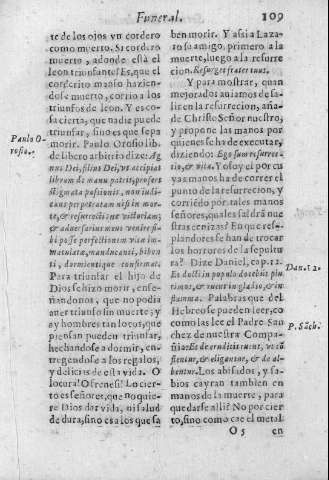 Funeral. 109
te de los ojos vn cordero
como muerto. Si cordero
muerto, adonde està el
leon triunfante? Es, que el
cordérito manso hazien-
dose muerto, corrio a los
triunfos de leon. Y es co-
sa cierta, que nadie puede
triunfar, sino es que sepa
morir. Paulo Orosio lib.
de libero arbitrio dize: Ag-
nus Dei, filius Dei, vt accipias
librum de manu patris, profers
stigmata passionis, non iudi-
cans perpetratam nisi in mor-
te, & resurrectione victoriam;
& aduersarius meus venire si-
bi posse perfectionem vita im-
maculata, manducanti, biben-
ti, dormientique confirmat.
Para triunfar el hijo de
Dios se hizo morir, ense-
ñandonos, que no podia
auer triunfo sin muerte; y
ay hombres tan locos, que
piensan pueden triunfar,
hechandose a dormir, en-
tregendose a los regalos,
y delicias desta vida. O
locura! O frenesi! Lo cier-
to es señores, que no quie-
re Dios dar vida, ni salud
de dura, sino es a los que sa
Paulo O-
rosio.
ben morir. Y assi a Laza-
ro su amigo, primero a la
muerte, luego a la resurre
cion. Resurget frater tuus.
Y para mostrar, quan
mejorados auiamos de sa-
lir en la resurreccion, aña-
de Christo Señor nuestro,
y propone las manos por
quien se ha de executar,
diziendo: Ego sum resurrec-
tio, & vita. Yo soy el punto
punto de la resurrecion, y
corriédo por tales manos
señores, que les saldrà nue
stras cenizas? En que res-
plandores se han de trocar
los horrores de la sepultu
ra? Dize Daniel, cap. 12.
Et docti in populo docebũt plu-
rimos, & ruent in gladio, & in
flamma. Palabras que del
Hebreo se pueden leer, co
como las lee el Padre San
chez de nuestra Compa-
ñia: Et de eruditis ruent, vt cõ
flentur, & eligantur, & deal-
bentur. Los abisados, y sa-
bios cayran tambien en
manos de la muerte, para
quedarse alli? No por cier
to, sino como cae el metal
Dan. 12.
P. Sãch.
O 5 en